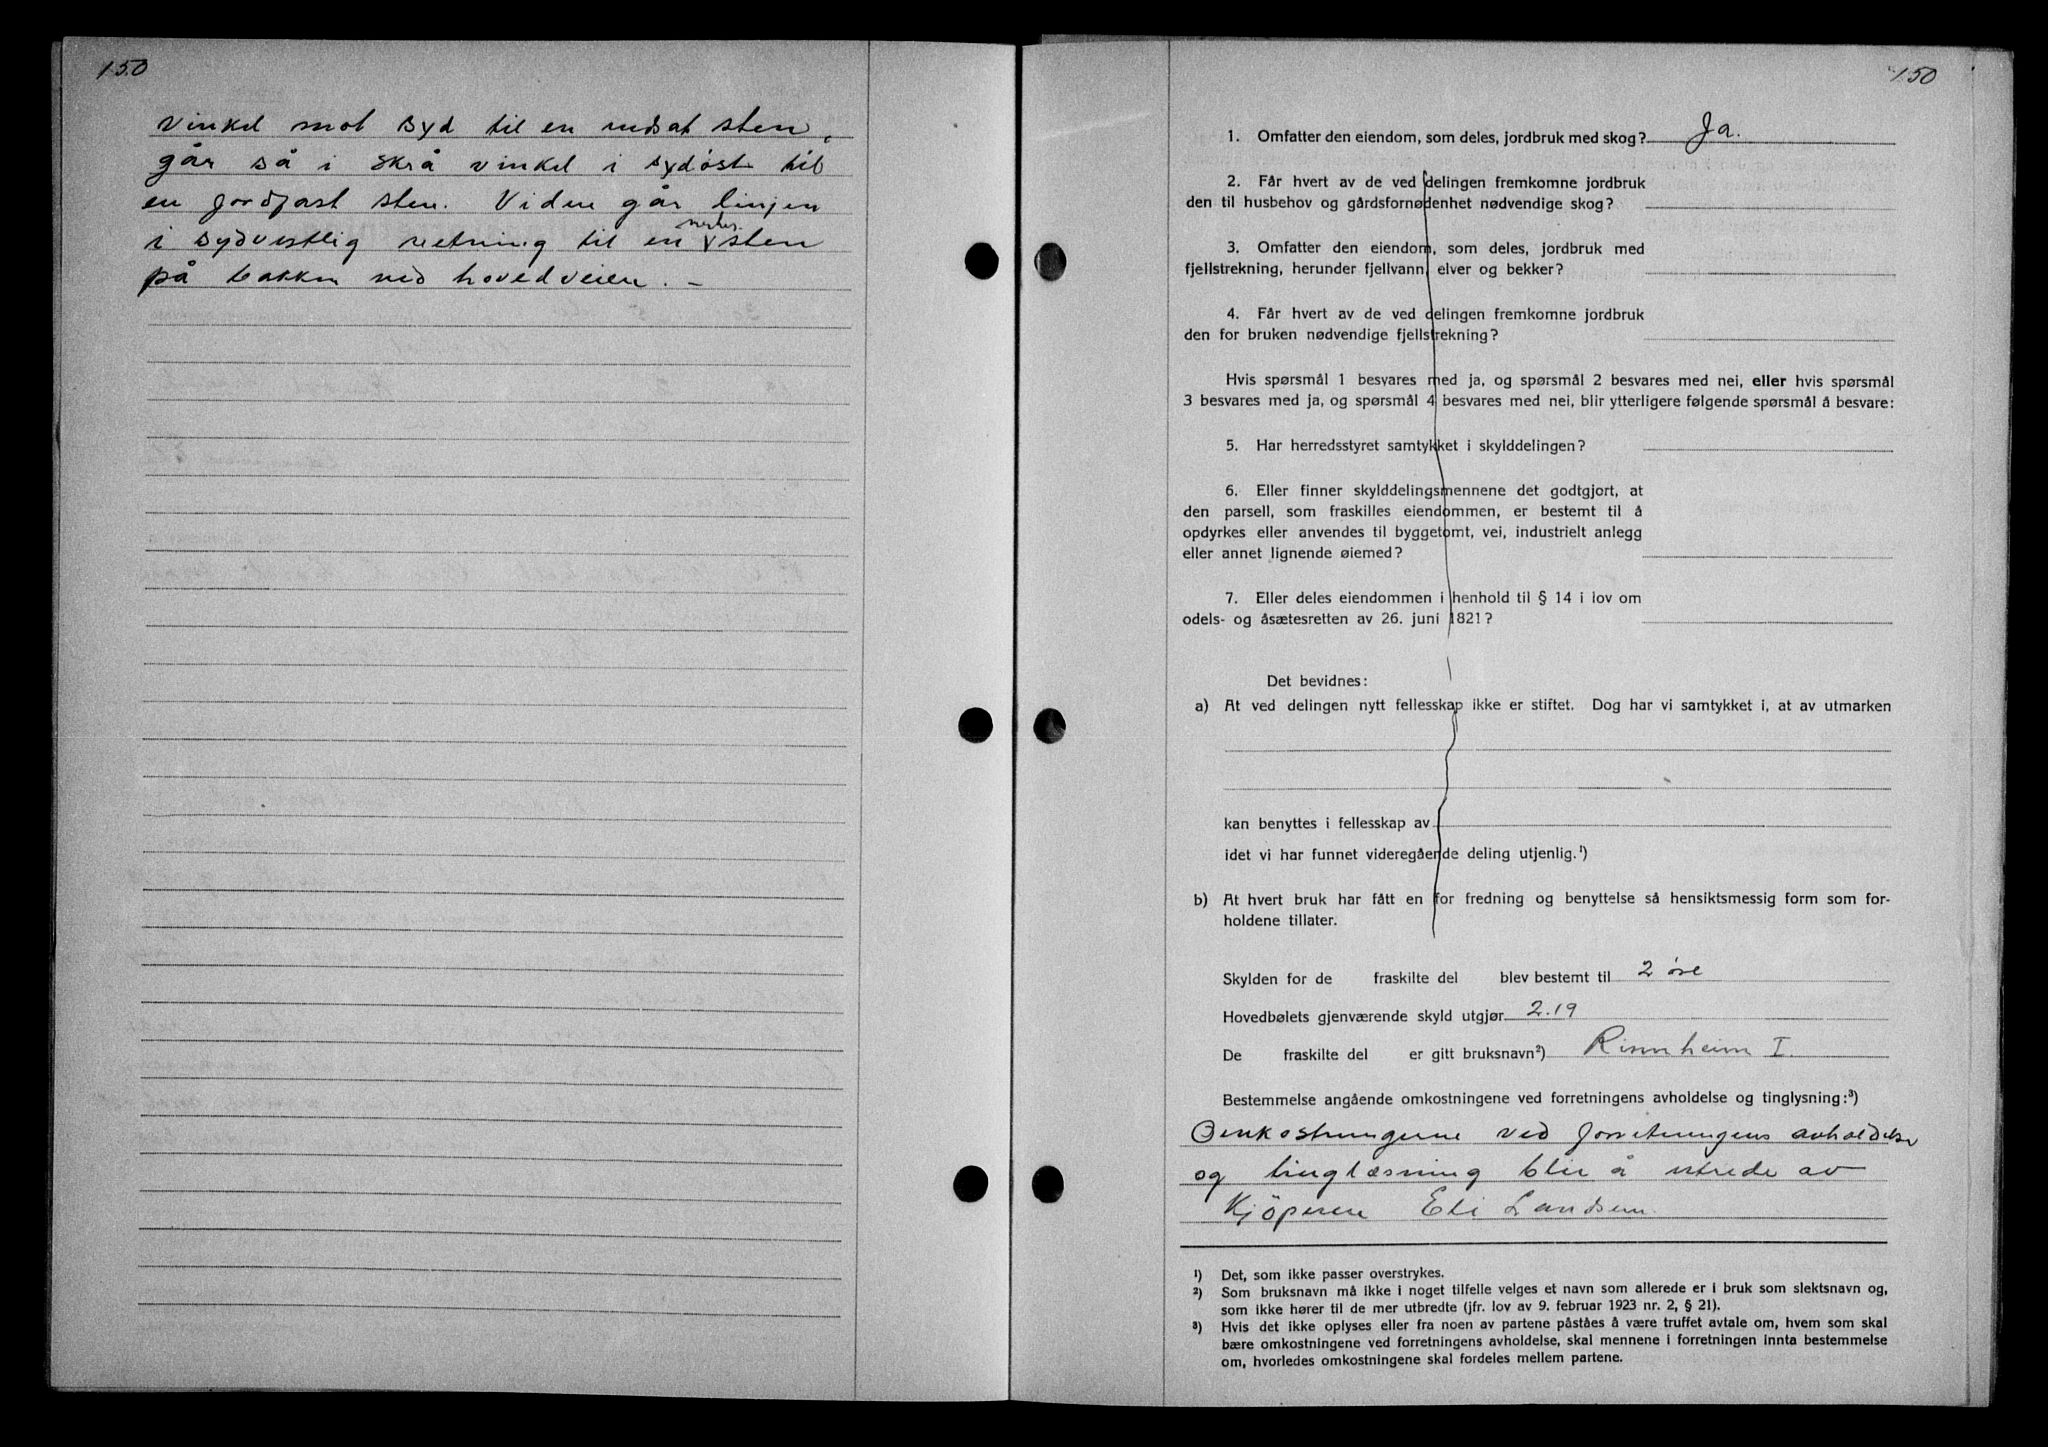 150
vinkel mot syd til en nedsat sten,
går så i skrå vinkel i sydöst til
en jordfast sten. Videre går linjen
i sydvestlig retning til en sten
på bakken ved hovedveien. –
150
1. Omfatter den eiendom, som deles, jordbruk med skog? Ja.
2. Får hvert av de ved delingen fremkomne jordbruk
den til husbehov og gårdsfornødenhet nødvendige skog?
3. Omfatter den eiendom, som deles, jordbruk med
fjellstrekning, herunder fjellvann, elver og bekker?
4. Får hvert av de ved delingen fremkomne jordbruk
den for bruken nødvendige fjellstrekning?
Hvis spørsmål 1 besvares med ja, og spørsmål 2 besvares med nei, eller hvis spørsmål
3 besvares med ja, og spørsmål 4 besvares med nei, blir ytterligere følgende spørsmål å besvare:
5. Har herredsstyret samtykket i skylddelingen?
6. Eller finner skylddelingsmennene det godtgjort, at
den parsell, som fraskilles eiendommen, er bestemt til å
opdyrkes eller anvendes til byggetomt, vei, industrielt anlegg
eller annet lignende øiemed?
7. Eller deles eiendommen i henhold til § 14 i lov om
odels- og åsætesretten av 26. juni 1821?
Det bevidnes:
a) At ved delingen nytt fellesskap ikke er stiftet. Dog har vi samtykket i, at av utmarken
kan benyttes i fellesskap av
idet vi har funnet videregående deling utjenlig.¹)
b) At hvert bruk har fått en for fredning og benyttelse så hensiktsmessig form som for-
holdene tillater.
Skylden for de fraskilte del blev bestemt til 2 øre
Hovedbølets gjenværende skyld utgjør 2.19
De fraskilte del er gitt bruksnavn²) Rinnheim I.
Bestemmelse angående omkostningene ved forretningens avholdelse og tinglysning:³)
Omkostningerne ved forretningens avholdelse
og tinglæsning blir å utrede av
Kjöperen Eli Landsem.
¹) Det, som ikke passer overstrykes.
²) Som bruksnavn må ikke i noget tilfelle velges et navn som allerede er i bruk som slektsnavn og,
som ikke hører til de mer utbredte (jfr. lov av 9. februar 1923 nr. 2, § 21).
³) Hvis det ikke oplyses eller fra noen av partene påståes å være truffet avtale om, hvem som skal
bære omkostningene ved forretningens avholdelse, skal mennene i forretningen innta bestemmelse
om, hvorledes omkostningene skal fordeles mellem partene.